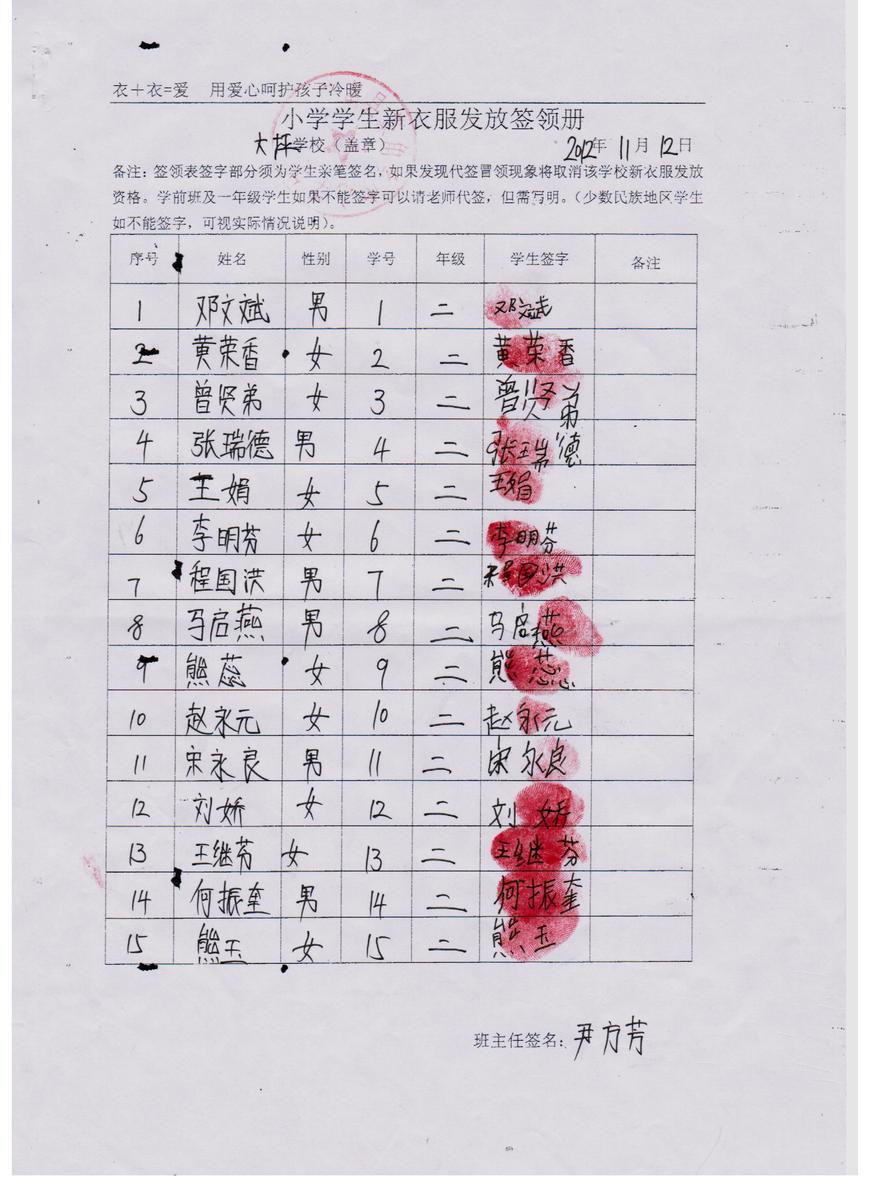 衣＋衣=爱 用爱心呵护孩子冷暖
小学学生新衣服发放签领册
大坪学校（盖章） 2012年 11月 12日
备注：签领表签字部分须为学生亲笔签名，如果发现代签冒领现象将取消该学校新衣服发放
资格。学前班及一年级学生如果不能签字可以请老师代签，但需写明。（少数民族地区学生
如不能签字，可视实际情况说明）。
序号 姓名 性别 学号 年级 学生签字 备注
1 邓文斌 男 1 二 邓文斌
2 黄荣香 女 2 二 黄荣香
3 曾贤弟 女 3 二 曾贤弟
4 张瑞德 男 4 二 张瑞德
5 王娟 女 5 二 王娟
6 李明芬 女 6 二 李明芬
7 程国洪 男 7 二 程国洪
8 马启燕 男 8 二 马启燕
9 熊蕊 女 9 二 熊蕊
10 赵永元 女 10 二 赵永元
11 宋永良 男 11 二 宋永良
12 刘娇 女 12 二 刘娇
13 王继芬 女 13 二 王继芬
14 何振奎 男 14 二 何振奎
15 熊玉 女 15 二 熊玉
班主任签名：尹方芳